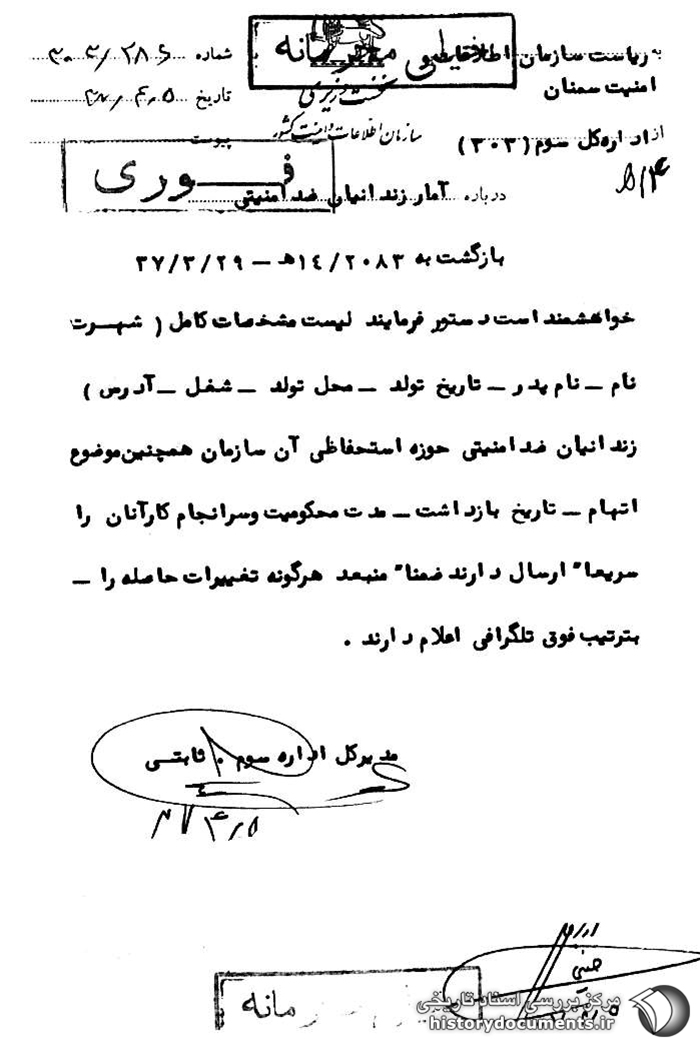 به ریاست سازمان اطلاعات و
امنیت سمنان
خیلی محرمانه
نخست وزیری
سازمان اطلاعات و امنیت کشور
از اداره کل سوم (۳۰۳)
شماره
تاریخ
پیوست
فــوری
درباره آمار زندانیان ضد امنیتی
بازگشت به ۱٤/۲۰۸۳هـ – ۳۷/۳/۲۹
خواهشمند است دستور فرمایند لیست مشخصات کامل ( شهــرت
نام – نام پدر – تاریخ تولد – محل تولد – شغل – آدرس )
زندانیان ضد امنیتی حوزه استحفاظی آن سازمان همچنین موضوع
اتهام – تاریخ بازداشت – مدت محکومیت وسرانجام کارآنان را
سریعا" ارسال دارند ضمنا" منبعد هرگونه تغییرات حاصله را –
بترتیب فوق تلگرافی اعلام دارند .
مدیرکل اداره سوم . ثابتــی
مانه
مرکز بررسی اسناد تاریخی
historydocuments.ir